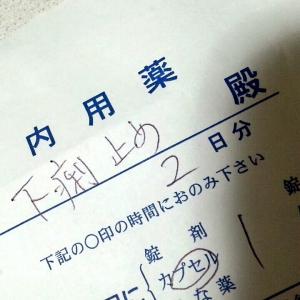 内用薬 殿
下痢止め
2日分
下記の○印の時間におのみ下さい
錠剤
カプセル
錠